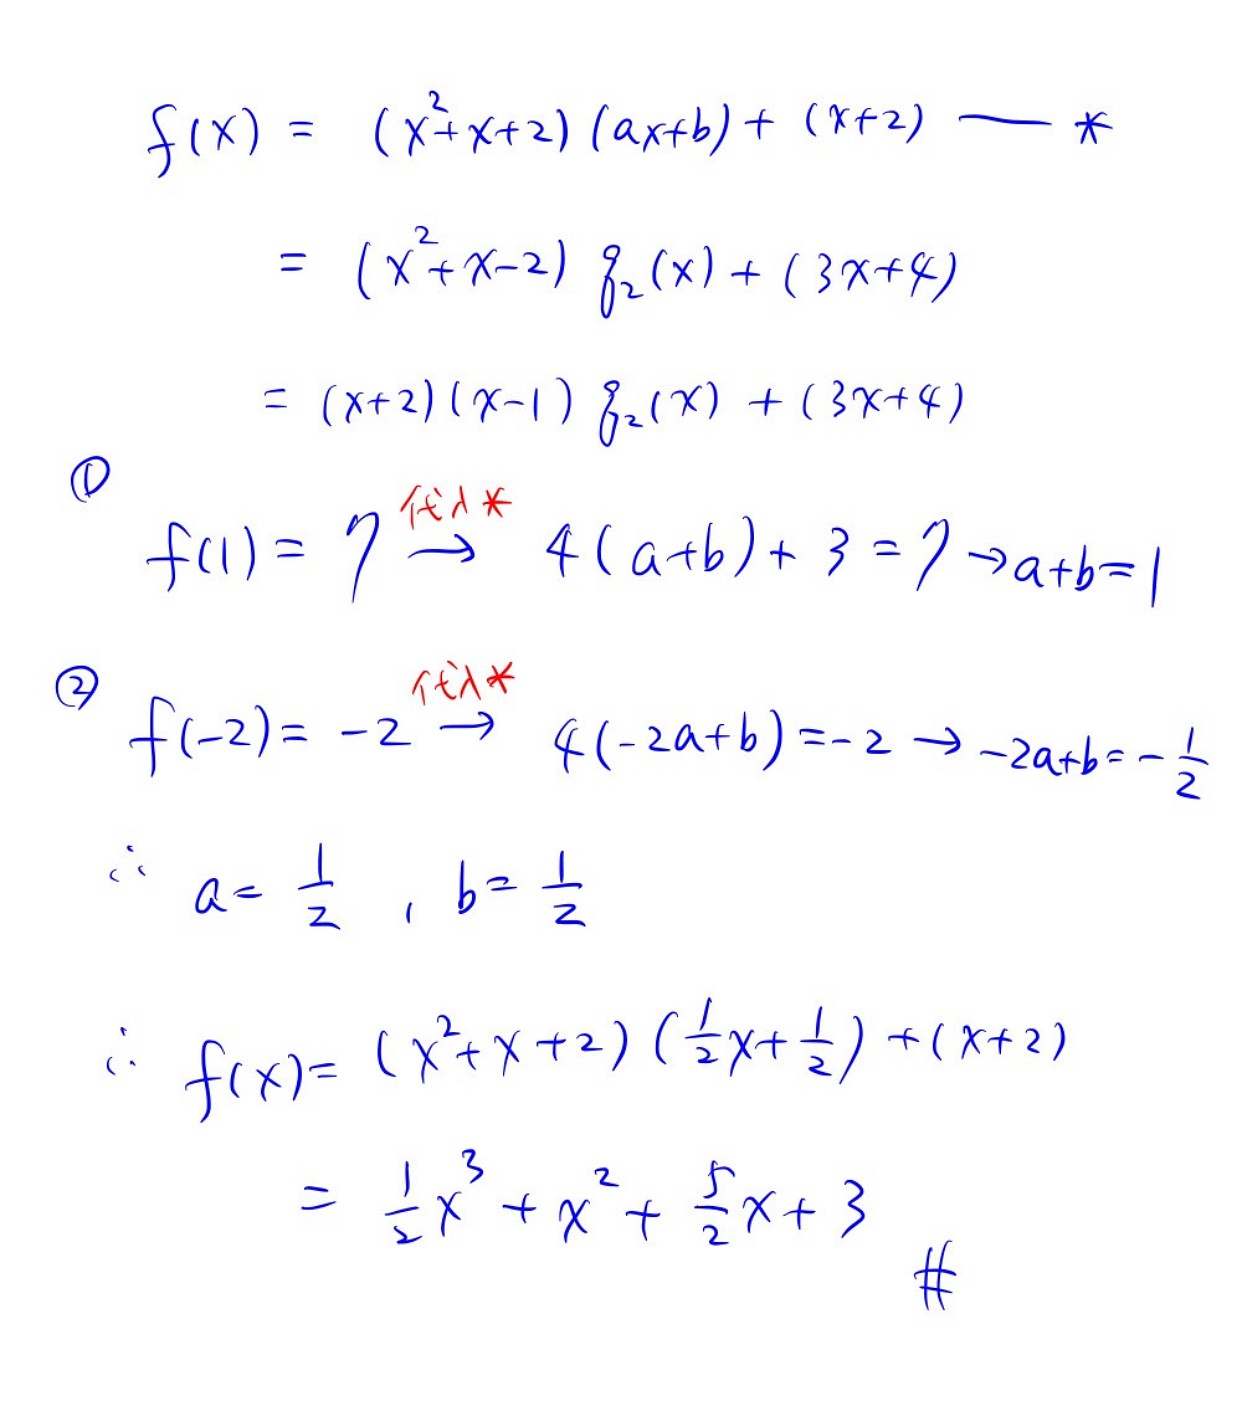 f(x) = (x²+x+2)(ax+b)+(x+2) — *
= (x²+x-2) q₂(x)+(3x+4)
= (x+2)(x-1) q₂(x)+(3x+4)
① f(1)=7 代入* → 4(a+b)+3=7→a+b=1
② f(-2)=-2 代入* → 4(-2a+b)=-2→-2a+b=-1/2
∴ a=1/2 , b=1/2
∴ f(x)=(x²+x+2)(1/2x+1/2)+(x+2)
= 1/2x³+x²+5/2x+3 #